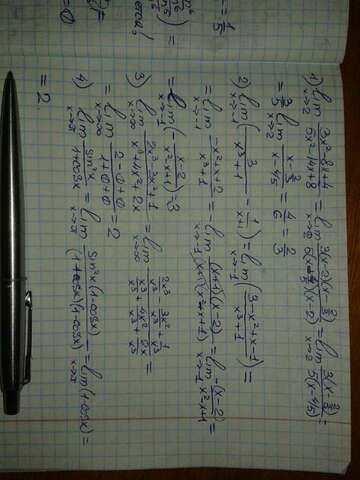 1) lim x→2 (3x²-8x+4)/(5x²-14x+8) = lim x→2 3(x-2)(x-2/3)/5(x-4/5)(x-2) = lim x→2 3(x-2/3)/5(x-4/5) =
= 3/5 lim x→2 (x-2/3)/(x-4/5) = 4/6 = 2/3
2) lim x→-1 (3/(x³+1) - 1/(x+1)) = lim x→-1 ((3-x²+x-1)/(x³+1)) =
= lim x→-1 (-x²+x+2)/(x³+1) = -lim x→-1 (x+1)(x-2)/(x+1)(x²-x+1) = lim x→-1 -(x-2)/(x²-x+1) =
= lim x→-1 (- (x-2)/(x²-x+1)) = 3/3
3) lim x→∞ (2x³-3x²+1)/(x³+4x²+2x) = lim x→∞ (2x³/x³ - 3x²/x³ + 1/x³)/(x³/x³ + 4x²/x³ + 2x/x³) =
= lim x→∞ (2-0+0)/(1+0+0) = 2
4) lim x→π sin²x/(1+cosx) = lim x→π sin²x(1-cosx)/(1+cosx)(1-cosx) = lim x→π (1-cosx) =
= 2.